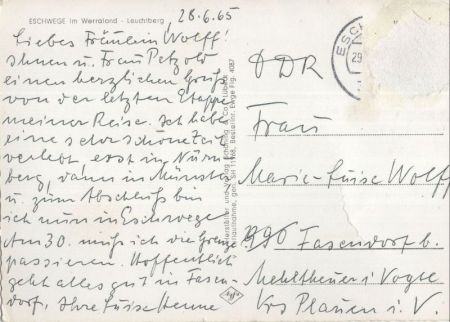 ESCHWEGE im Werraland - Leuchtberg
28.6.65
Liebes Fräulein Wolff!
Ihnen u. Frau Petzold
einen herzlichen Gruß
von der letzten Etappe
meiner Reise. Ich habe
eine sehr schöne Zeit
verlebt, erst in Nürn-
berg, dann in Münster
u. zum Abschluß bin
ich nun in Eschwege
Am 30. muß ich die Grenze
passieren. Hoffentlich
geht alles gut in Fasen-
dorf, Ihre Luise Henne
Schöning & Co Lübeck
Bestellnr. Ewge Fig. 4087
ESCH
29
DDR
Frau
Marie-Luise Wolff
996 Fasendorf b.
Mehltheuer i Vogtl
Krs Plauen i. V.
Agfa